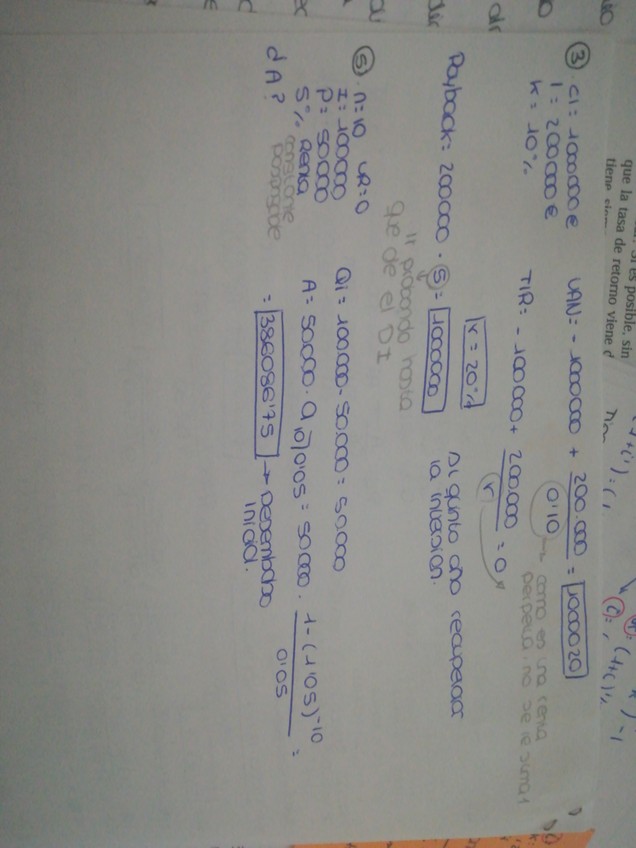 que la tasa de retorno viene d
tiene
③. CI = 1000000€
I = 200000€
K = 10%
VAN = - 1000000 + 200.000 / 0'10 = 1000020
como es una renta
perpetua, no se le suma 1
TIR = - 100000 + 200.000 / r = 0
r = 20%
Payback = 200000 · 5 = 1000000
probando hasta
que de el DI
Al quinto año recuperar
la inversion.
⑤. n=10 VR=0
I = 100000
P = 50000
5% Renta
constante
pospagable
d A?
Qi = 100.000 - 50.000 = 50.000
A = 50000 · a 10⌉0'05 = 50.000 · 1-(1'05)^-10 / 0'05 =
= 386086'75 → Desembolso
inicial.